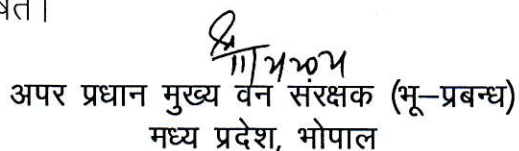 षत।
अपर प्रधान मुख्य वन संरक्षक (भू–प्रबन्ध)
मध्य प्रदेश, भोपाल